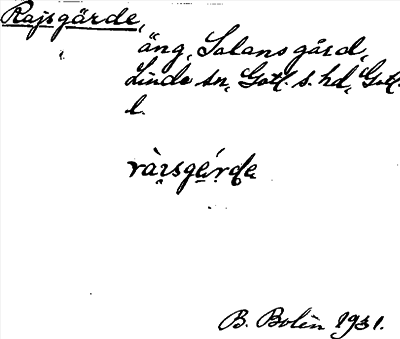 Rajsgärde,
äng, Salans gård,
Linde sn, Gotl. s. hd, Gotl.
l.
B. Bolin 1931.